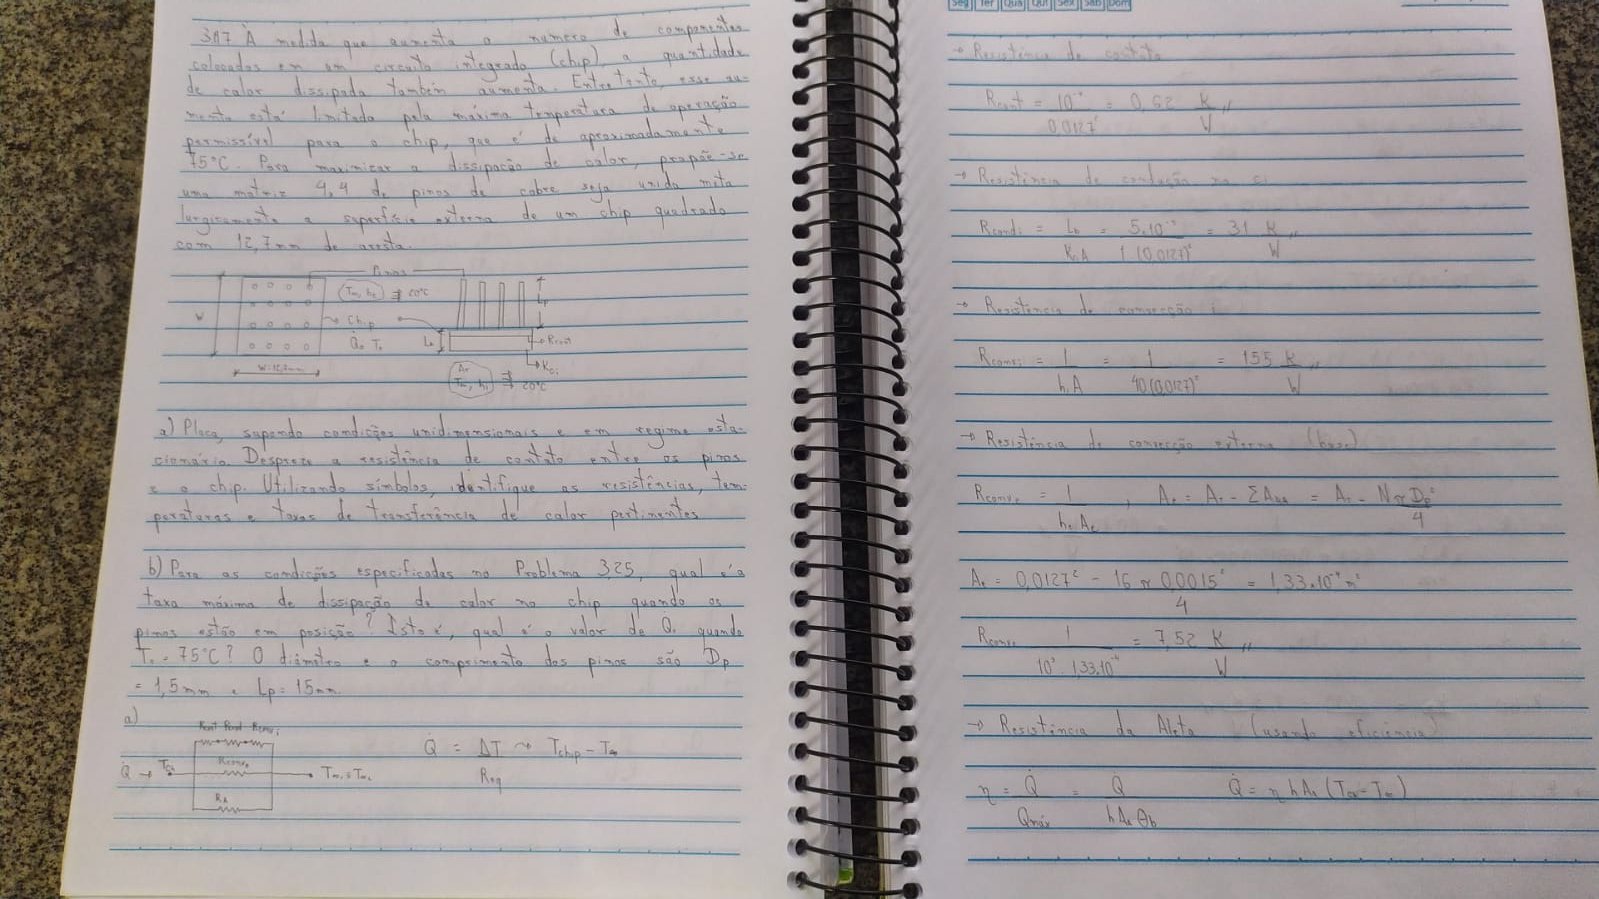 Seg Ter Qua Qui Sex Sáb Dom
317 À medida que aumenta o número de componentes
colocados em um circuito integrado (chip), a quantidade
de calor dissipada também aumenta. Entretanto, esse au-
mento está limitado pela máxima temperatura de operação
permissível para o chip, que é de aproximadamente
75°C. Para maximizar a dissipação de calor, propõe-se
uma matriz 4x4 de pinos de cobre seja unida meta
lurgicamente a superfície externa de um chip quadrado
com 12,7mm de aresta.
Pinos
T∞, he 20°C
Lp
W
Chip
Qc Tc
Lb
Rcont
W=12,7mm
Kci
Ar
T∞, hi 20°C
a) Placa, supondo condições unidimensionais e em regime esta-
cionário. Despreze a resistência de contato entre os pinos
e o chip. Utilizando símbolos, identifique as resistências, tem-
peraturas e taxas de transferência de calor pertinentes
b) Para as condições especificadas no Problema 3.25, qual é a
taxa máxima de dissipação de calor no chip quando os
pinos estão em posição? Isto é, qual é o valor de Qc quando
Tc = 75°C? O diâmetro e o comprimento dos pinos são Dp
= 1,5mm e Lp = 15mm.
a)
Rcont Rcond Rconvi
Rconve
RA
Q = ΔT → Tchip - T∞
Req
→ Resistência de contato
Rcont = 10⁻⁴ = 0,62 K
0,0127² W
→ Resistência de condução na ci
Rcondi = Lb = 5.10⁻³ = 31 K
Kb A 1 (0,0127)² W
→ Resistência de convecção i
Rconvi = 1 = 1 = 155 K
hi A 40(0,0127)² W
→ Resistência de convecção externa (base)
Rconve = 1 , Ae = At - ΣAba = At - NπDp²
he Ae 4
Ae = 0,0127² - 16 π 0,0015² = 1,33.10⁻⁴ m²
4
Rconve 1 = 7,52 K
10³ . 1,33.10⁻⁴ W
→ Resistência da Aleta (usando eficiência)
η = Q = Q Q = η h Aa (Tch - T∞)
Qmáx h Aa θb